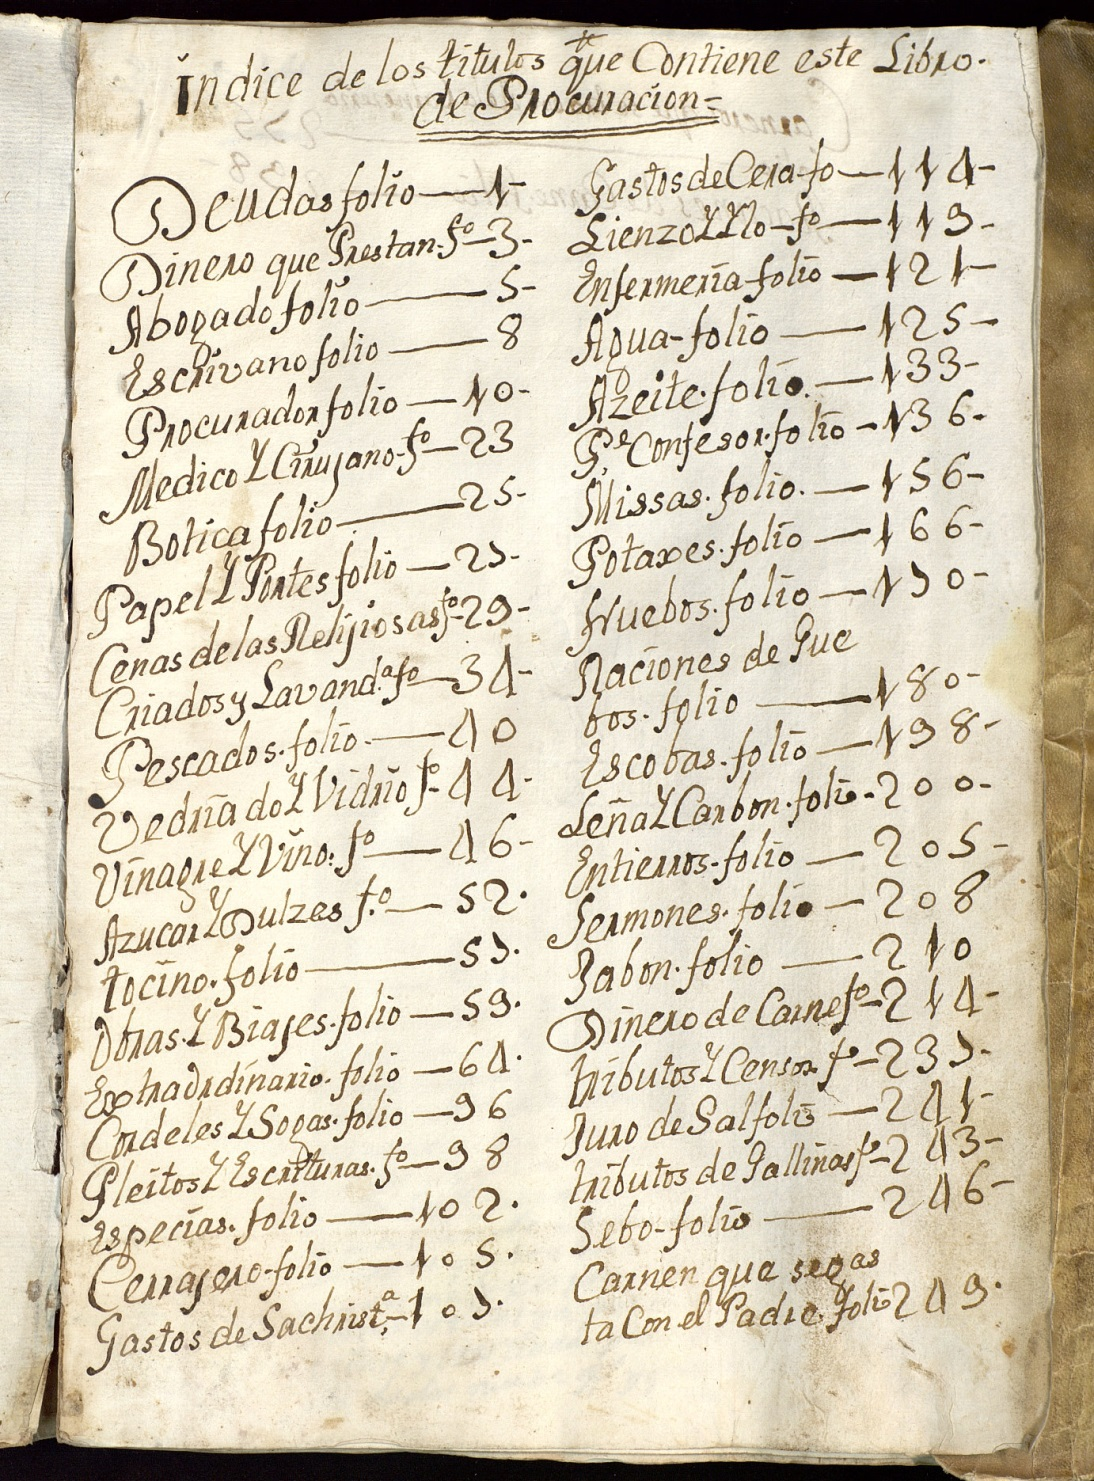 Indice de los titulos que Contiene este Libro.
de Procuracion=
Deudas folio — 1-
Dinero que Prestan. fº — 3-
Abogado folio — 5-
Escrivano folio — 8
Procurador folio — 10-
Medico Y Cirujano-fº — 23
Botica folio — 25-
Papel Y Portes folio — 27-
Cenas de las Relijiosas fº- 29-
Criados y Lavand.ª fº — 34-
Pescados. folio. — 40
Vedriado Y Vidrio fº- 44-
Vinagre Y Vino: fº — 46-
Azucar Y Dulzes f.º — 52.
tocino. folio — 57.
Obras. Y Biajes. folio — 59.
Extraordinario. folio — 64.
Cordeles Y Sogas. folio — 96
Pleitos Y Escrituras. fº — 98
Especias. folio — 102.
Cerrajero-folio — 105.
Gastos de Sachrist.ª — 107.
Gastos de Cera-fo — 114-
Lienzo Y Ylo-fº — 119-
Enfermeria-folio — 121-
Agua-folio — 125-
Azeite. folio. — 133-
Pe Confesor. folio — 136-
Missas. folio. — 156-
Potaxes. folio — 166-
Huebos. folio — 170-
Raciones de Gue
bos. folio — 180-
Escobas. folio — 198-
Leña Y Carbon. folio - 200-
Entierros. folio — 205-
Sermones. folio — 208
Jabon. folio — 210
Dinero de Carne fº — 214-
tributos Y Censos. fº — 237-
Juro de Sal folio — 241-
tributos de Gallinas fº — 243-
Sebo-folio — 246-
Carnen que segas
ta Con el Padre folio 249.